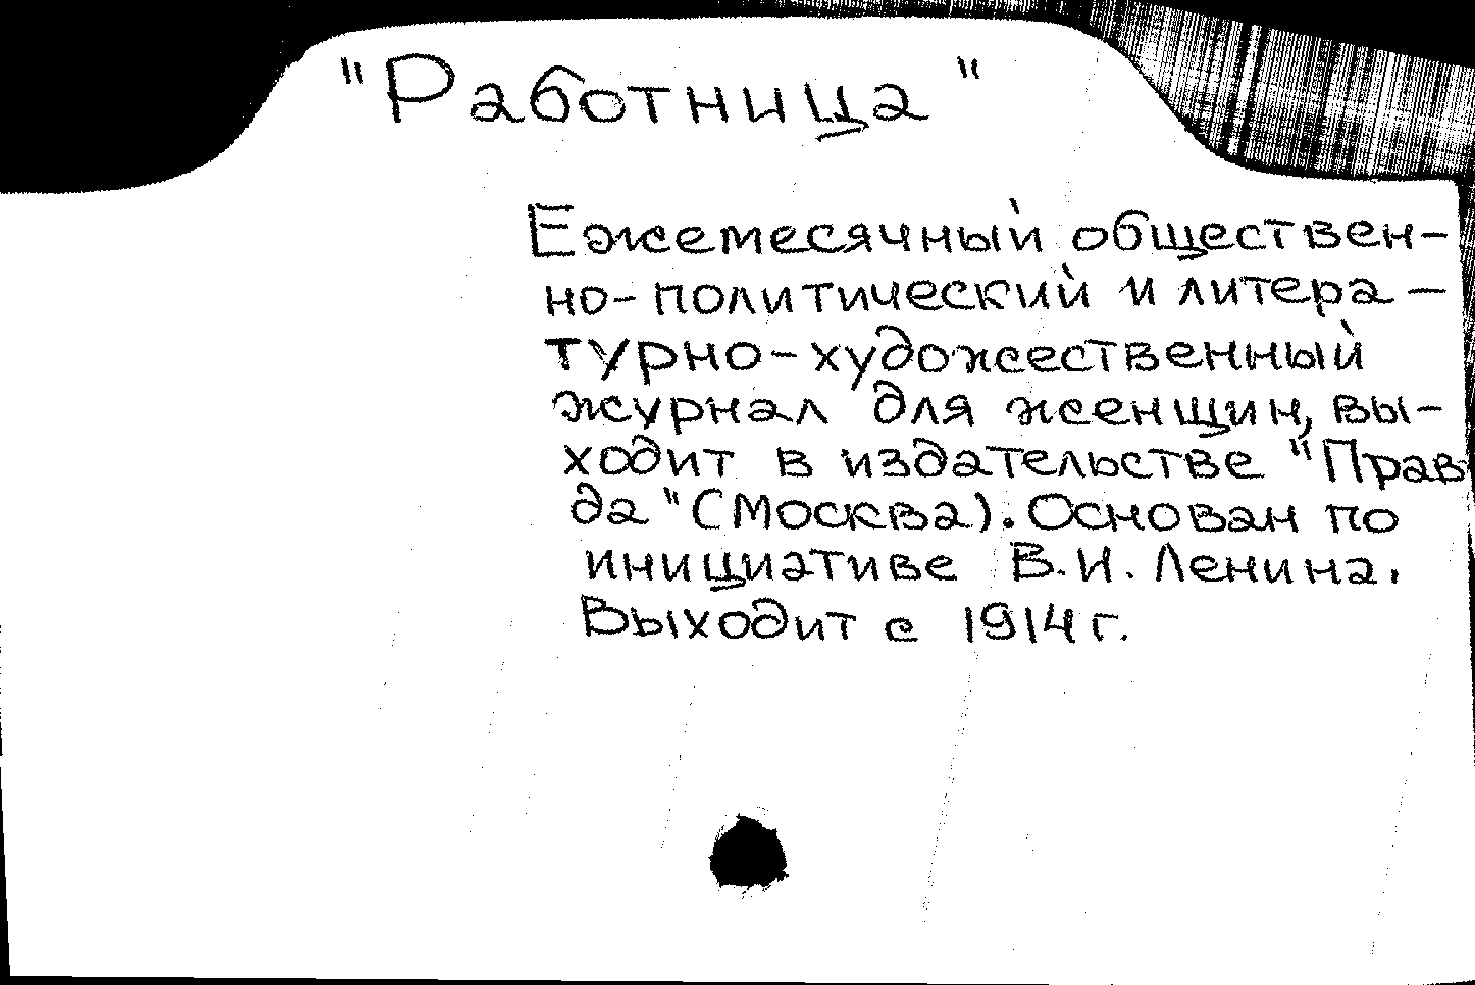 "Работница"
Ежемесячный обществен-
но-политический и литера-
турно-художественный
журнал для женщин, вы-
ходит в издательстве "Прав
да" (Москва). Основан по
инициативе В.И. Ленина.
Выходит с 1914 г.